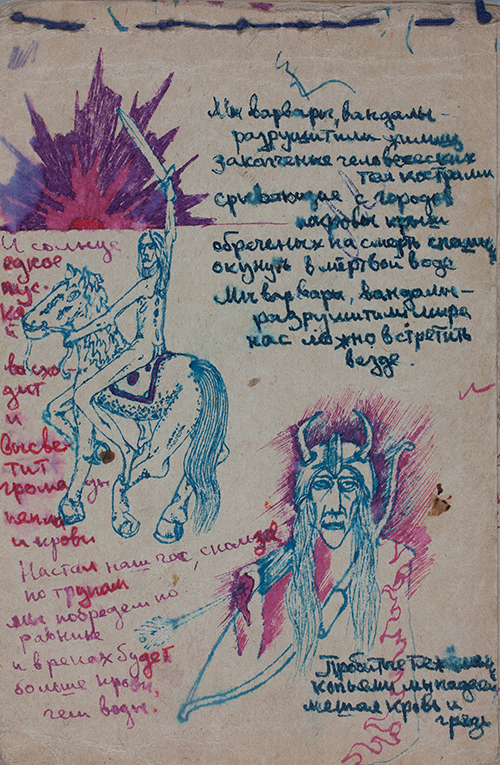 Мы варвары, вандалы -
разрушители жилищ
закопченые человеческих
тел кострами
срывающие с городов
покровы крыш
обреченых на смерть спешим
окунуть в мёртвой воде
Мы варвары, вандалы -
разрушители мира
нас можно встретить
везде.
И солнце
едкое
пус-
ка
восхо-
дит
и
высве
тит
грома
ды
пепла
и крови
Настал наш час, скользя
по трупам
мы побредем по
равнине
и в реках будет
больше крови,
чем воды.
Пробитые
копьями мы падаем
мешая кровь и
грязь